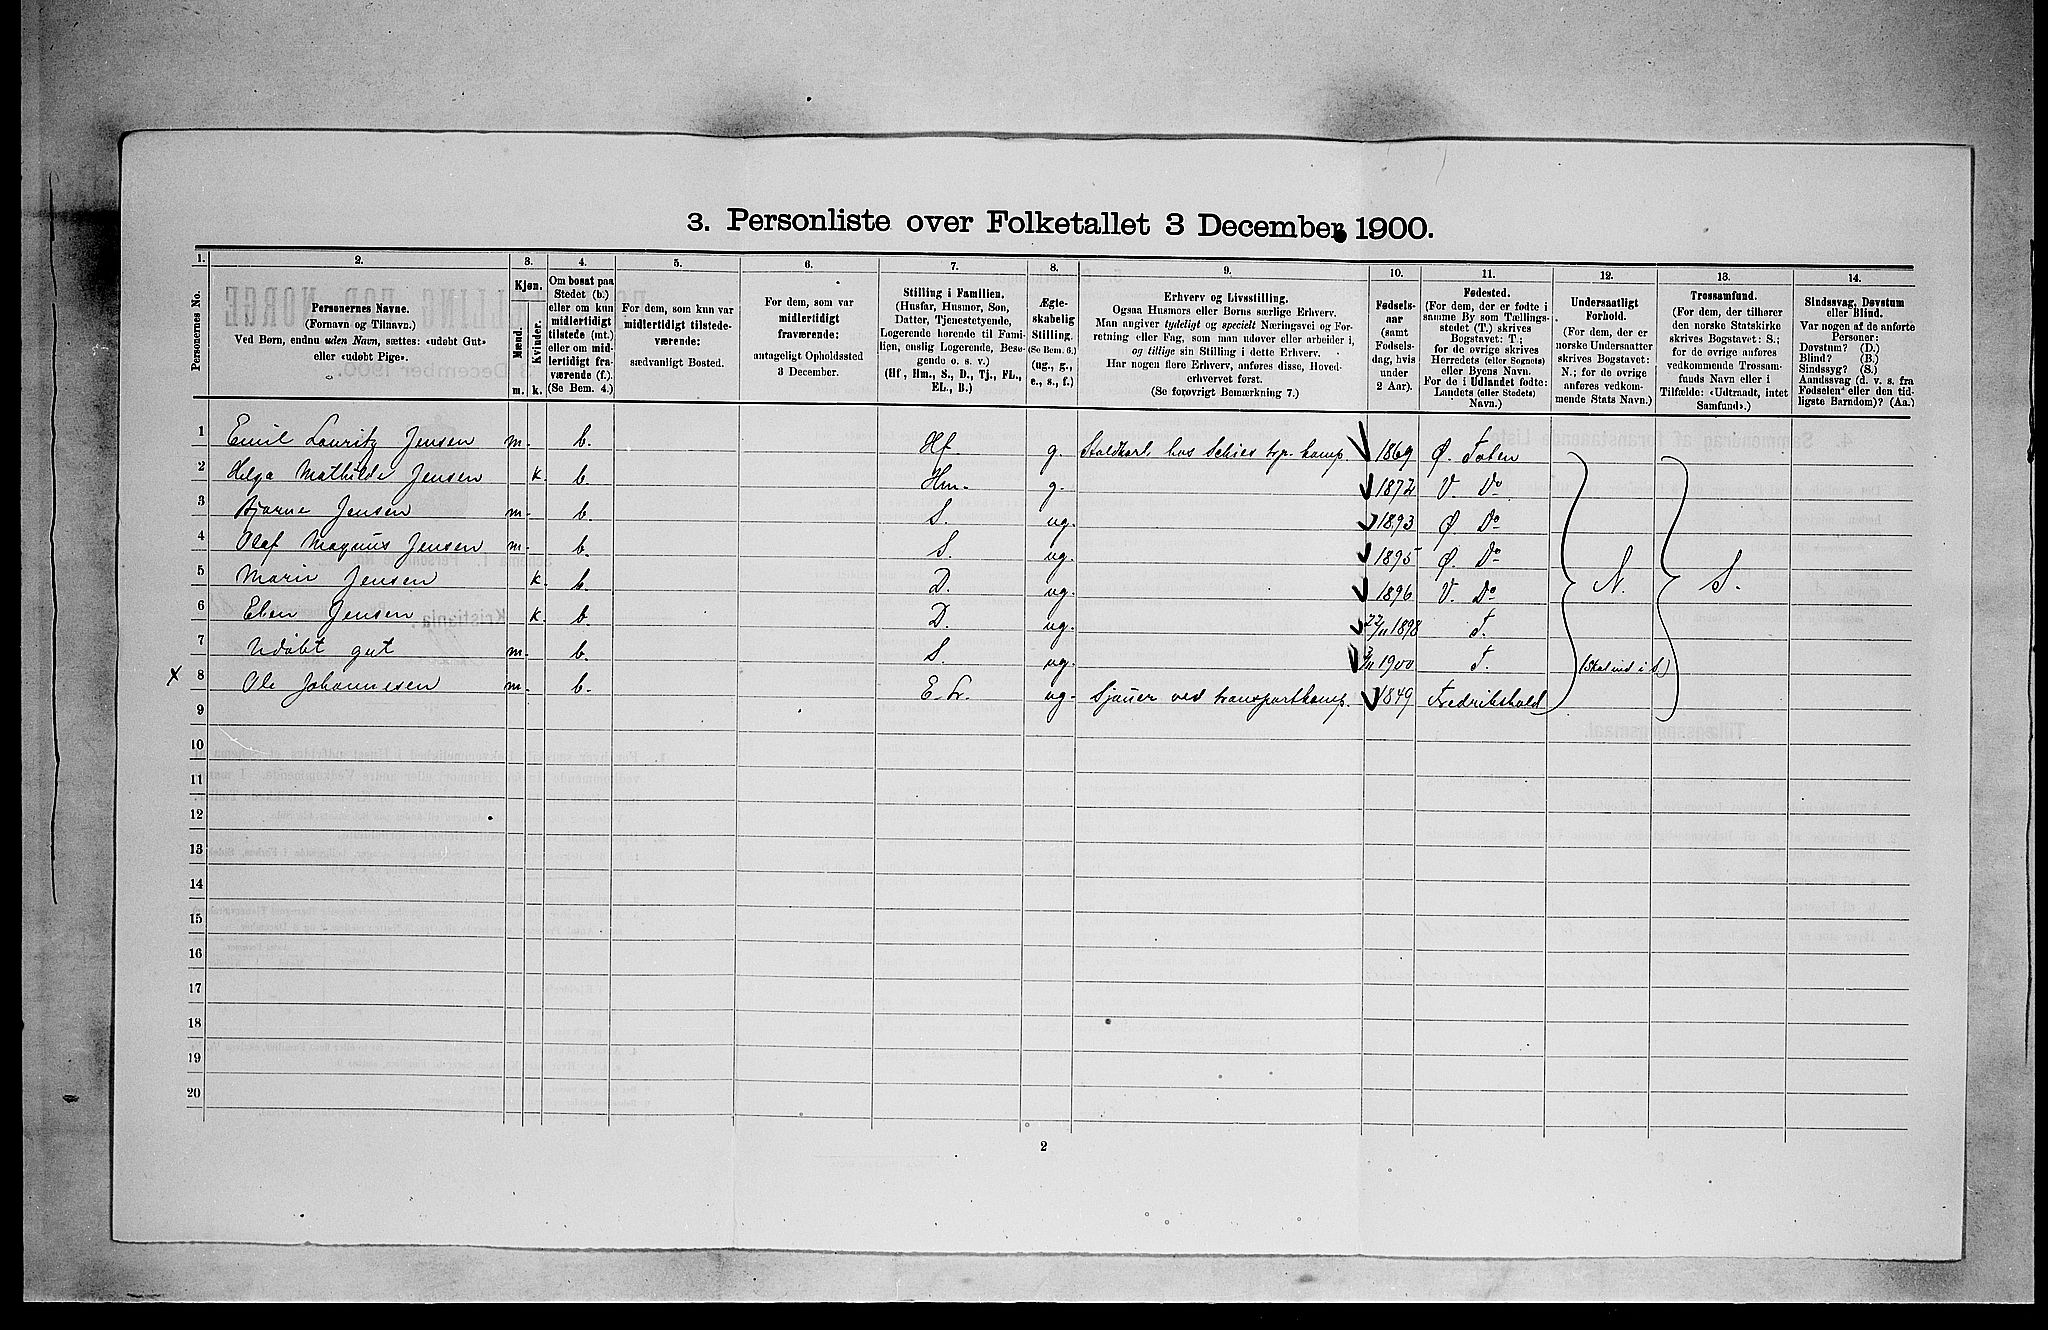 3. Personliste over Folketallet 3 December 1900.
1. 2. 3. 4. 5. 6. 7. 8. 9. 10. 11. 12. 13. 14.
Personernes No.
Personernes Navne.
(Fornavn og Tilnavn.)
Ved Børn, endnu uden Navn, sættes: «udøbt Gut»
eller «udøbt Pige».
Kjøn.
Mænd.
Kvinder.
m. k.
Om bosat paa
Stedet (b.)
eller om kun
midlertidigt
tilstede (mt.)
eller om mid-
lertidigt fra-
værende (f.).
(Se Bem. 4.)
For dem, som kun var
midlertidigt tilstede-
værende:
sædvanligt Bosted.
For dem, som var
midlertidigt
fraværende:
antageligt Opholdssted
3 December.
Stilling i Familien.
(Husfar, Husmor, Søn,
Datter, Tjenestetyende,
Logerende hørende til Fami-
lien, enslig Logerende, Besø-
gende o. s. v.)
(Hf, Hm., S., D., Tj., FL.,
EL., B.)
Ægte-
skabelig
Stilling.
(Se Bem. 6.)
(ug., g.,
e., s., f.)
Erhverv og Livsstilling.
Ogsaa Husmors eller Børns særlige Erhverv.
Man angiver tydeligt og specielt Næringsvei og For-
retning eller Fag, som man udøver eller arbeider i,
og tillige sin Stilling i dette Erhverv.
Har nogen flere Erhverv, anføres disse, Hoved-
erhvervet først.
(Se forøvrigt Bemærkning 7.)
Fødsels-
aar
(samt
Fødsels-
dag, hvis
under
2 Aar).
Fødested.
(For dem, der er fødte i
samme By som Tællings-
stedet (T.) skrives
Bogstavet: T.;
for de øvrige skrives
Herredets (eller Sognets)
eller Byens Navn.
For de i Udlandet fødte:
Landets (eller Stedets)
Navn.)
Undersaatligt
Forhold.
(For dem, der er
norske Undersaatter
skrives Bogstavet:
N.; for de øvrige
anføres vedkom-
mende Stats Navn.)
Trossamfund.
(For dem, der tilhører
den norske Statskirke
skrives Bogstavet: S.;
for de øvrige anføres
vedkommende Trossam-
funds Navn eller i
Tilfælde: «Udtraadt, intet
Samfund».)
Sindssvag, Døvstum
eller Blind.
Var nogen af de anførte
Personer:
Døvstum? (D.)
Blind? (B.)
Sindssyg? (S.)
Aandssvag (d. v. s. fra
Fødselen eller den tid-
ligste Barndom)? (Aa.)
1 Emil Lauritz Jensen m. b. Hf. g. Staldkarl hos Schies tsp. komp. 1869 Ø. Toten
2 Helga Mathilde Jensen k. b. Hm. g. 1872 V. Do
3 Bjarne Jensen m. b. S. ug. 1893 Ø Do
4 Olaf Magnus Jensen m. b. S. ug. 1895 Ø. Do
5 Marie Jensen k. b. D. ug. 1896 V. Do N. S.
6 Ellen Jensen k. b. D. ug. 22/11 1898 T.
7 Udøbt gut m. b. S. ug. 3/11 1900 T. (Skal ind i S.)
x 8 Ole Johannesen m. b. E.L. ug. Sjauer ved transportkomp. 1849 Fredrikshald
9
10
11
12
13
14
15
16
17
18
19
20
2